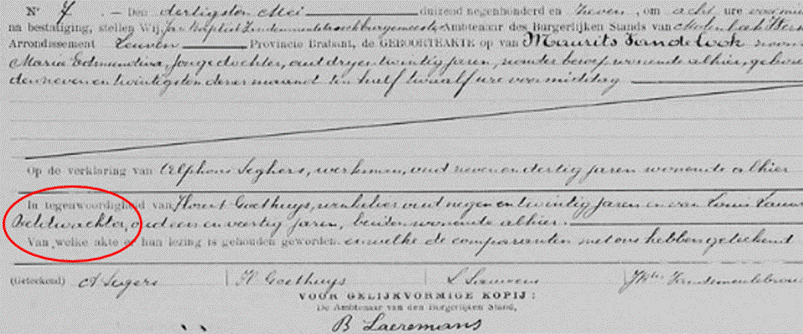 N° 7. — Den dertigsten Mei duizend negenhonderd en zeven, om acht ure voormid
na bestatiging, stellen Wij, Jan Baptist Vandemeulebroeck burgemeester Ambtenaar des Burgerlijken Stands van Molenbeek Wers
Arrondissement Leuven Provincie Brabant, de GEBOORTEAKTE op van Maurits Vandelook zoon
Maria Edmundina, jonge dochter, oud dry en twintig jaren, zonder beroep, wonende alhier, gebore
den zeven en twintigsten dezer maand ten half twaalf ure voormiddag
Op de verklaring van Alphons Seghers, werkman, oud zeven en dertig jaren wonende alhier
In tegenwoordigheid van Florent Goethuys, winkelier oud negen en twintig jaren en van Louis Lauw
Veldwachter, oud een en veertig jaren, beiden wonende alhier.
Van welke akte er hun lezing is gehouden geworden en welke de comparanten met ons hebben geteekend
(Geteekend) A Segers Fl. Goethuys L Lauwens J Bte Vandemeulebroe
VOOR GELIJKVORMIGE KOPIJ :
De Ambtenaar van den Burgerlijken Stand,
B Laeremans